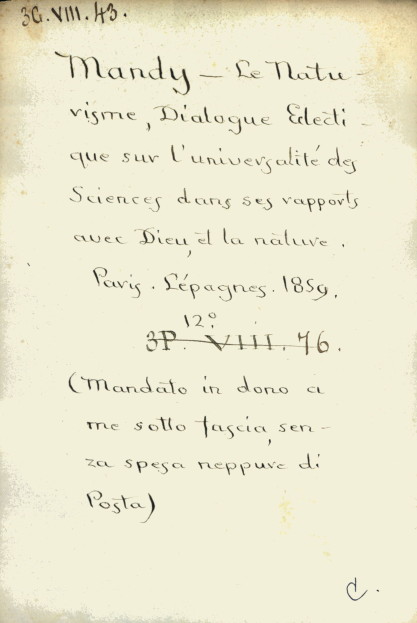 3G.VIII.43.
Mandy – Le Natu-
risme, Dialogue Eclecti-
que sur l'universalité des
Sciences dans ses rapports
avec Dieu, et la nature.
Paris. Lépagnes. 1859.
12°.
3P. VIII. 76.
(Mandato in dono a
me sotto fascia, sen-
za spesa neppure di
Posta)
C.